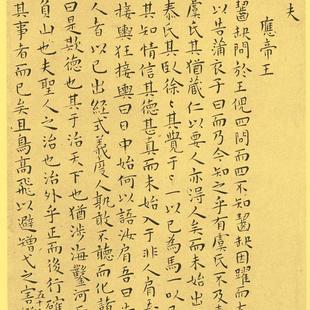 夫
應帝王
齧缺問於王倪四問而四不知齧缺因躍而大
以告蒲衣子曰而乃今知之乎有虞氏不及
虞氏其猶藏仁以要人亦得人矣而未始出
泰氏其臥徐〻其覺于〻一以已為馬一以已
其知情信其德甚真而未始入于非人肩吾
接輿狂接輿曰日中始何以語汝肩吾曰告
人者以已出經式義度人孰敢不聽而化諸
曰是欺德也其于治天下也猶涉海鑿河
負山也夫聖人之治也治外乎正而後行確
其事者而已矣且鳥高飛以避矰弋之害